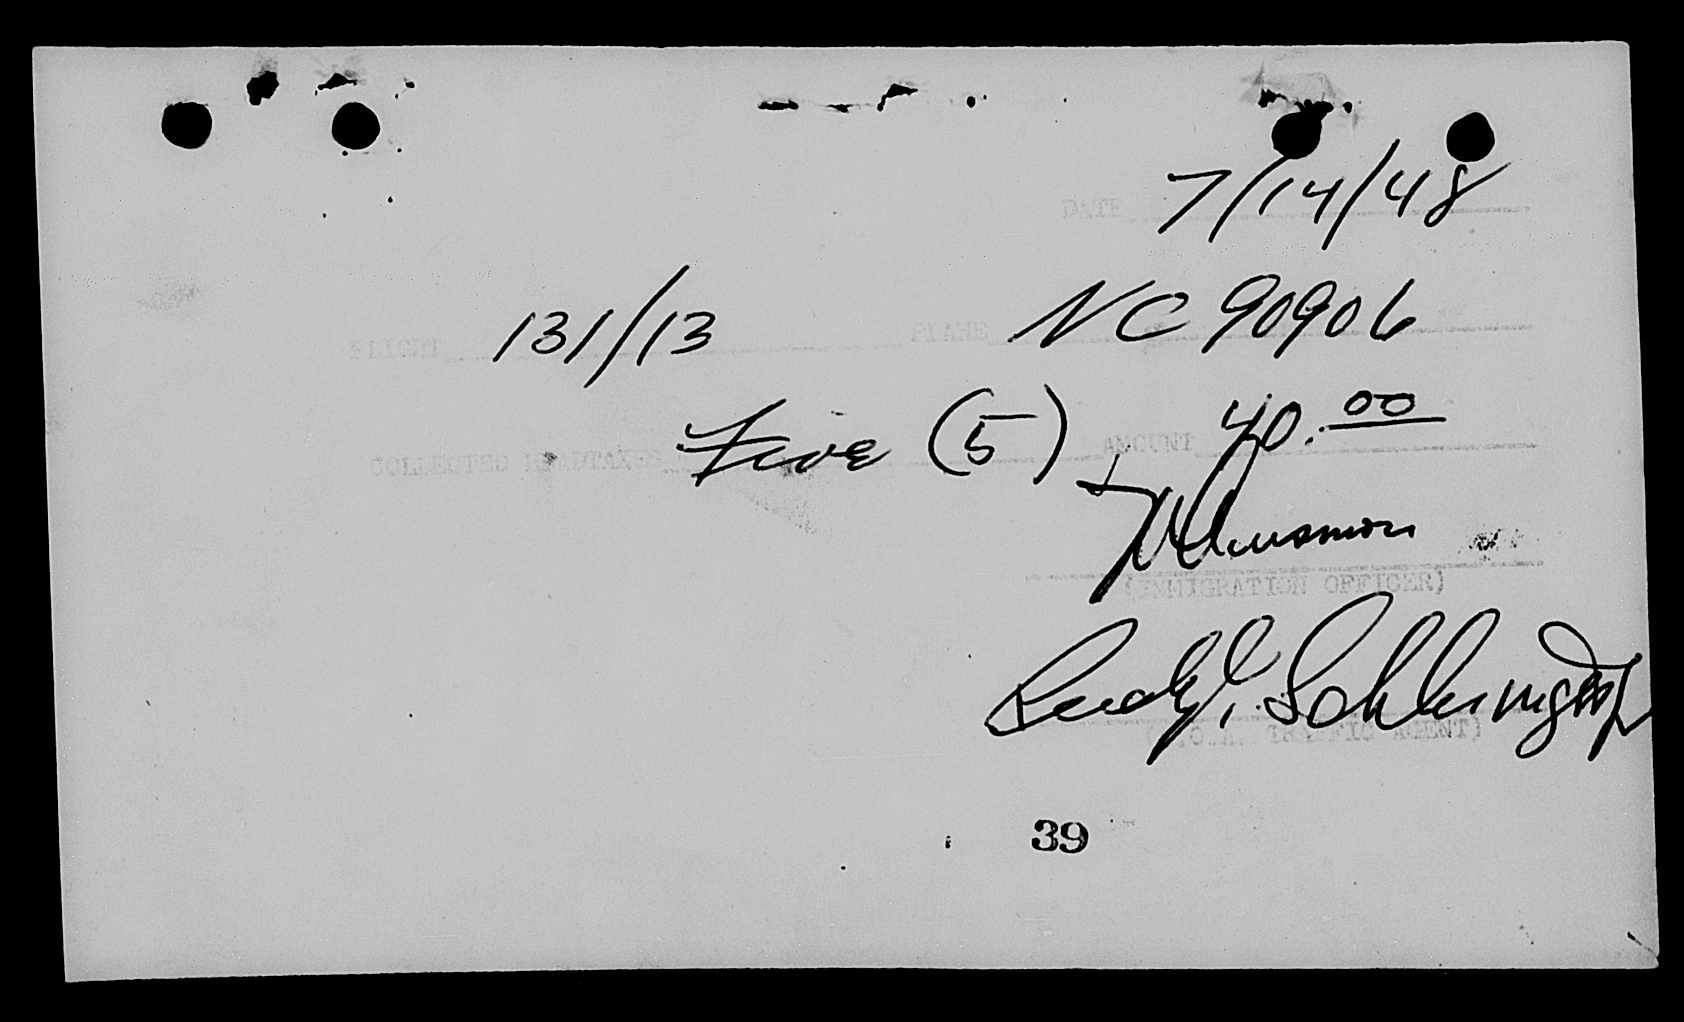 DATE 7/14/48
FLIGHT 131/13 PLANE NC 90906
COLLECTED HEADTAXES Five (5) AMOUNT 40.00
(IMMIGRATION OFFICER)
Rudy E.
TRAFFIC AGENT)
39